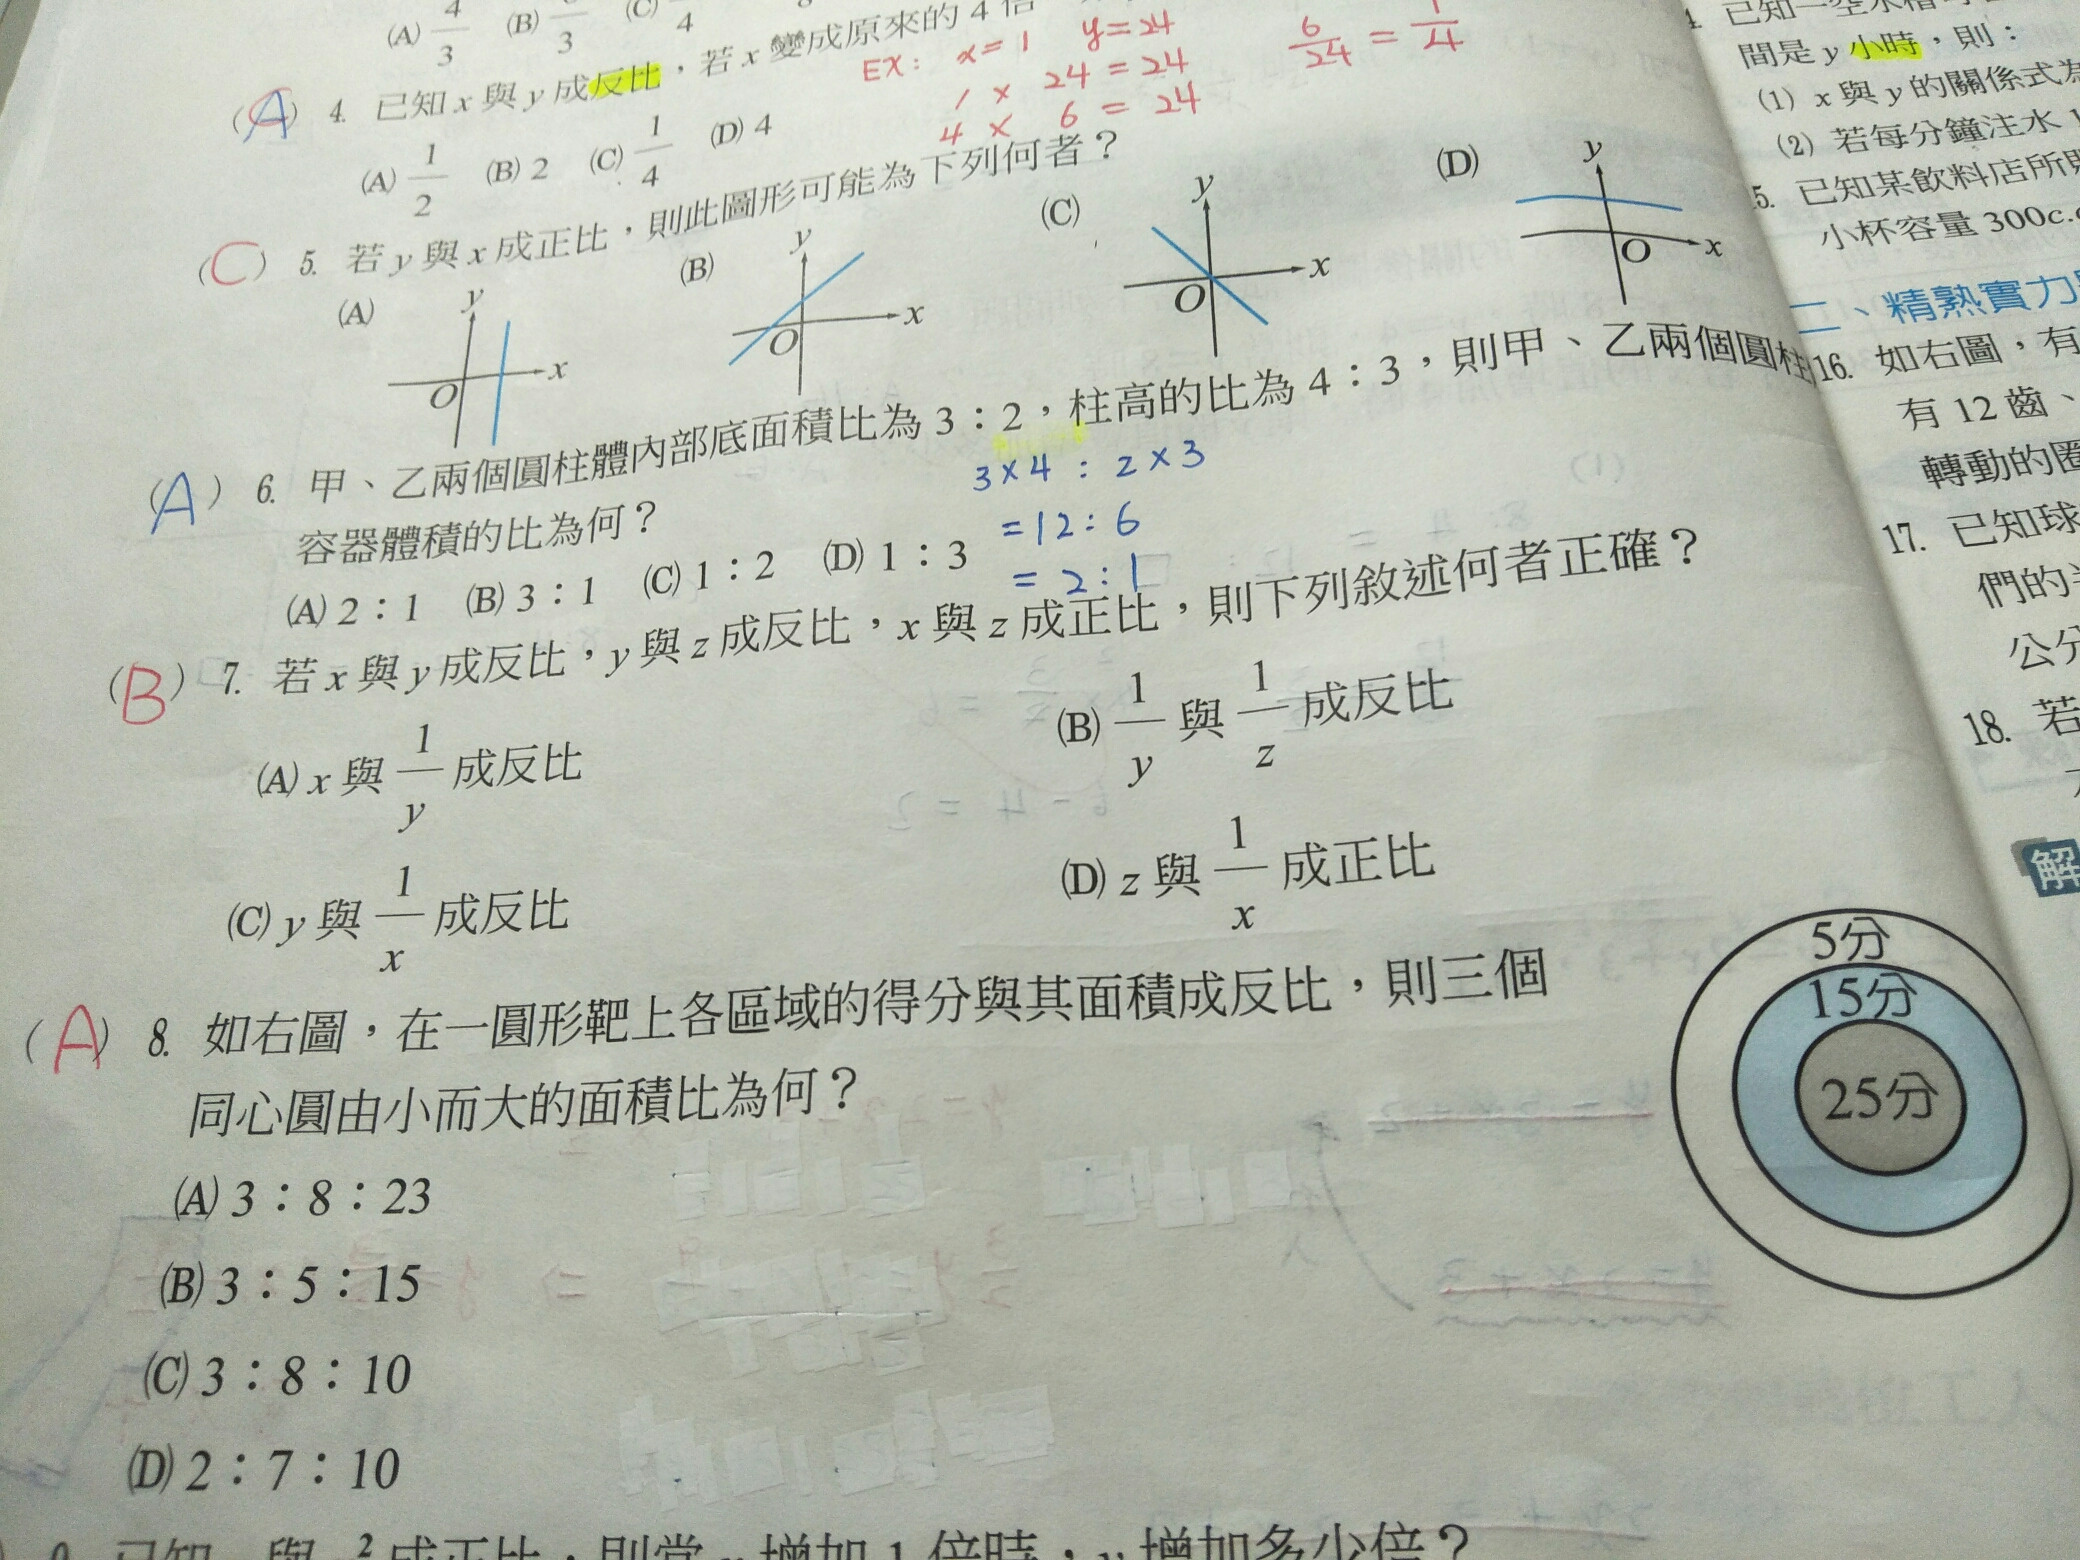 (A) 4/3 (B) /3 (C) /4
(A) 4. 已知 x 與 y 成反比，若 x 變成原來的 4 倍
EX: x=1 y=24
1 × 24 = 24
4 × 6 = 24
6/24 = 1/4
(A) 1/2 (B) 2 (C) 1/4 (D) 4
(C) 5. 若 y 與 x 成正比，則此圖形可能為下列何者？
(A) y x O
(B) y x O
(C) y x O
(D) y x O
(A) 6. 甲、乙兩個圓柱體內部底面積比為 3：2，柱高的比為 4：3，則甲、乙兩個圓柱
容器體積的比為何？
3×4 : 2×3
=12:6
= 2:1
(A) 2：1 (B) 3：1 (C) 1：2 (D) 1：3
(B) 7. 若 x 與 y 成反比，y 與 z 成反比，x 與 z 成正比，則下列敘述何者正確？
(A) x 與 1/y 成反比
(B) 1/y 與 1/z 成反比
(C) y 與 1/x 成反比
(D) z 與 1/x 成正比
(A) 8. 如右圖，在一圓形靶上各區域的得分與其面積成反比，則三個
同心圓由小而大的面積比為何？
(A) 3：8：23
(B) 3：5：15
(C) 3：8：10
(D) 2：7：10
5分
15分
25分
已知 與 2 成正比，則當 增加 1 倍時，y 增加多少倍？
已知一空水槽
間是 y 小時，則：
(1) x 與 y 的關係式為
(2) 若每分鐘注水
5. 已知某飲料店所
小杯容量 300c.c
二、精熟實力
16. 如右圖，有
有 12 齒、
轉動的圈
17. 已知球
們的半
公分
18. 若
解